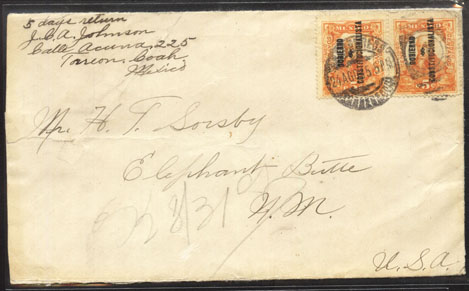 5 days return
J. C. A. Johnson
Calle Acuna, 225
Torreon, Coah.
Mexico
MEXICO MEXICO
GOBIERNO
CONSTITUCIONALISTA
GOBIERNO
CONSTITUCIONALISTA
Mr. H. T. Sorsby
Elephant Butte
N.M.
U.S.A.